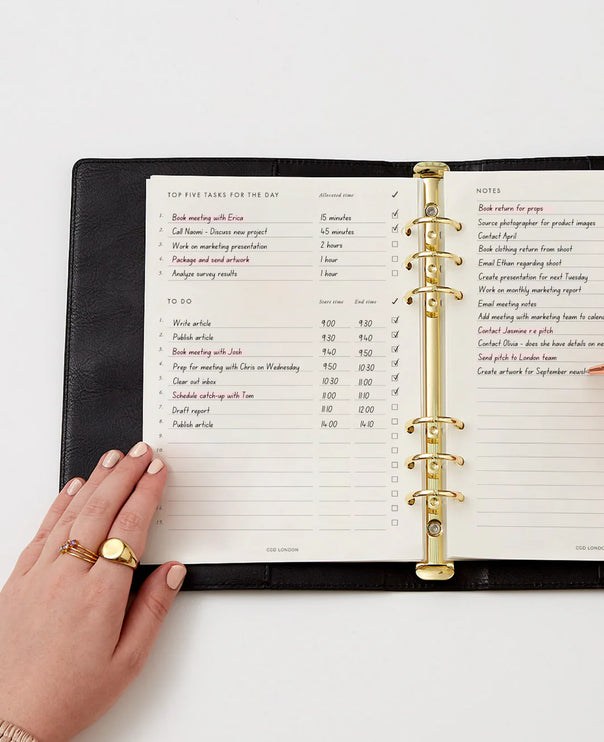 TOP FIVE TASKS FOR THE DAY Allocated time ✓
1. Book meeting with Erica 15 minutes
2. Call Naomi - Discuss new project 45 minutes
3. Work on marketing presentation 2 hours
4. Package and send artwork 1 hour
5. Analyze survey results 1 hour
TO DO Start time End time ✓
1. Write article 9:00 9:30
2. Publish article 9:30 9:40
3. Book meeting with Josh 9:40 9:50
4. Prep for meeting with Chris on Wednesday 9:50 10:30
5. Clear out inbox 10:30 11:00
6. Schedule catch-up with Tom 11:00 11:10
7. Draft report 11:10 12:00
8. Publish article 14:00 14:10
9.
10.
15.
CGD LONDON
NOTES
Book return for props
Source photographer for product images
Contact April
Book clothing return from shoot
Email Ethan regarding shoot
Create presentation for next Tuesday
Work on monthly marketing report
Email meeting notes
Add meeting with marketing team to
Contact Jasmine r.e pitch
Contact Olivia - does she have details on
Send pitch to London team
Create artwork for September
CGD LONDON